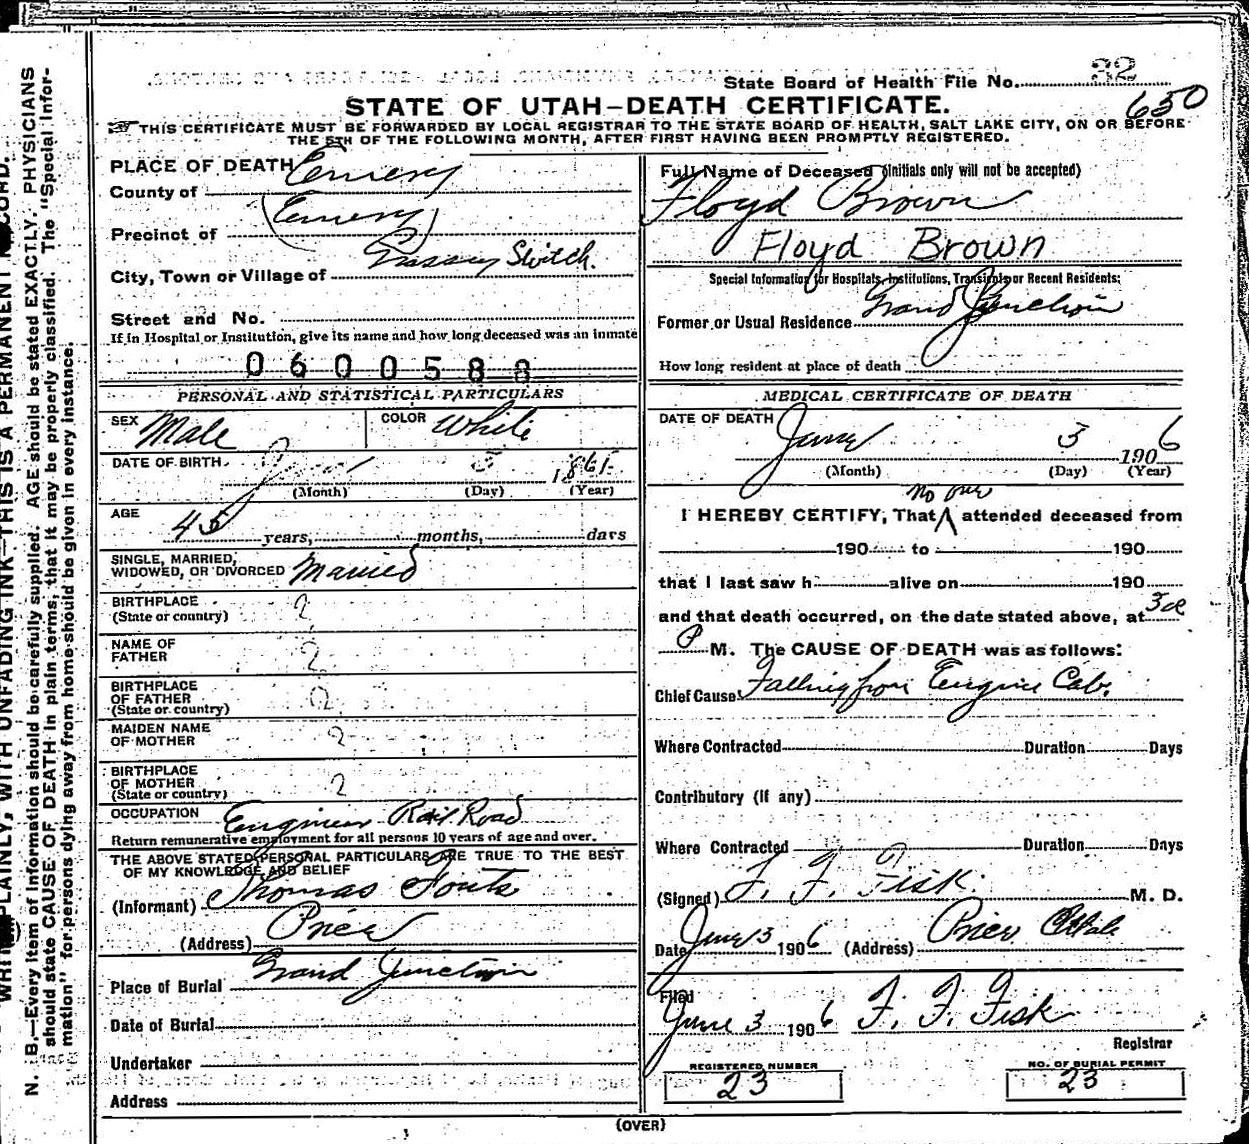 State Board of Health File No. 32
650
STATE OF UTAH—DEATH CERTIFICATE.
THIS CERTIFICATE MUST BE FORWARDED BY LOCAL REGISTRAR TO THE STATE BOARD OF HEALTH, SALT LAKE CITY, ON OR BEFORE
THE 5TH OF THE FOLLOWING MONTH, AFTER FIRST HAVING BEEN PROMPTLY REGISTERED.
PLACE OF DEATH
County of Emery
Precinct of (Emery)
City, Town or Village of Grassey Switch.
Street and No.
If in Hospital or Institution, give its name and how long deceased was an inmate
0600588
PERSONAL AND STATISTICAL PARTICULARS
SEX Male COLOR White
DATE OF BIRTH 5 1861
(Month) (Day) (Year)
AGE
45 years, months, days
SINGLE, MARRIED,
WIDOWED, OR DIVORCED Married
BIRTHPLACE ?
(State or country)
NAME OF
FATHER ?
BIRTHPLACE
OF FATHER ?
(State or country)
MAIDEN NAME
OF MOTHER ?
BIRTHPLACE
OF MOTHER ?
(State or country)
OCCUPATION Engineer Rail Road
Return remunerative employment for all persons 10 years of age and over.
THE ABOVE STATED PERSONAL PARTICULARS ARE TRUE TO THE BEST
OF MY KNOWLEDGE AND BELIEF
(Informant) Thomas Fouts
(Address) Price
Place of Burial Grand Junction
Date of Burial
Undertaker
Address
Full Name of Deceased (Initials only will not be accepted)
Floyd Brown
Floyd Brown
Special Information for Hospitals, Institutions, Transients or Recent Residents:
Former or Usual Residence Grand Junction
How long resident at place of death
MEDICAL CERTIFICATE OF DEATH
DATE OF DEATH
June 3 1906
(Month) (Day) (Year)
no one
I HEREBY CERTIFY, That attended deceased from
190 to 190
that I last saw h alive on 190
and that death occurred, on the date stated above, at 3
P M. The CAUSE OF DEATH was as follows:
Chief Cause Falling from Engine Cab.
Where Contracted Duration Days
Contributory (if any)
Where Contracted Duration Days
(Signed) F. F. Fisk. M. D.
Date June 3 1906 (Address) Price
Filed
June 3 1906 F. F. Fisk
Registrar
REGISTERED NUMBER
23
NO. OF BURIAL PERMIT
23
(OVER)
WRITE PLAINLY, WITH UNFADING INK—THIS IS A PERMANENT RECORD.
N. B.—Every item of information should be carefully supplied. AGE should be stated EXACTLY. PHYSICIANS
should state CAUSE OF DEATH in plain terms, that it may be properly classified. The "Special Infor-
mation" for persons dying away from home should be given in every instance.